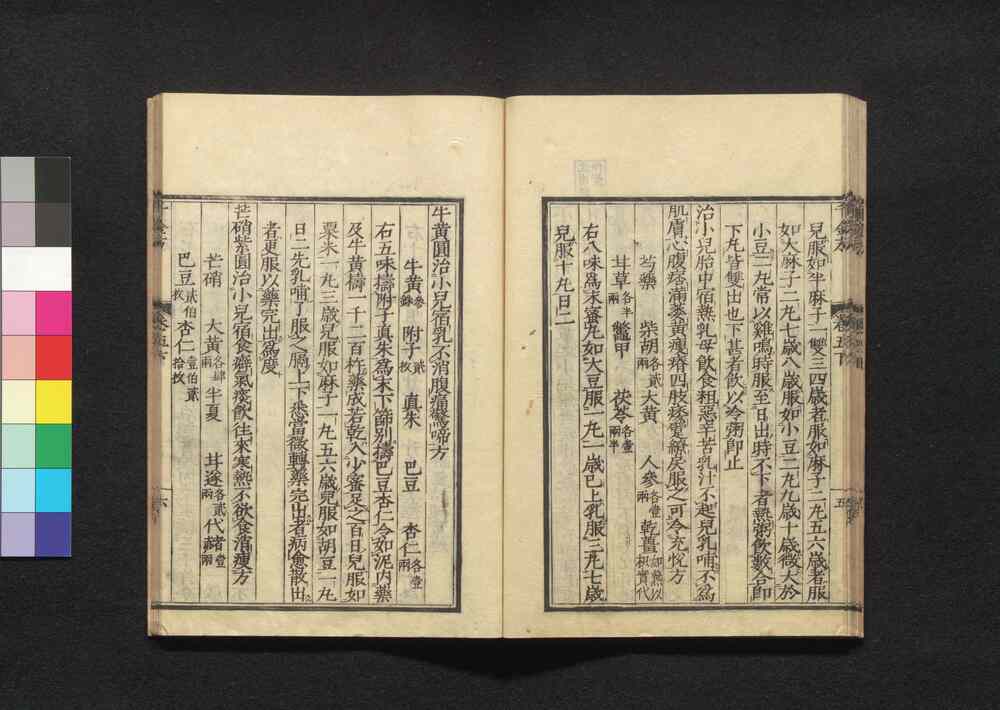 兒服如半麻子一雙三四歲者服如麻子二丸五六歲者服
如大麻子二丸七歲八歲服如小豆二丸九歲十歲微大於
小豆二丸常以雞鳴時服至日出時不下者熱粥飲數合即
下丸皆雙出也下甚者飲以冷粥即止
治小兒胎中宿熱乳母飲食粗惡辛苦乳汁不起兒乳哺不為
肌膚心腹痞滿萎黃瘦瘠四肢痿躄繚戾服之可令充悅方
芍藥 柴胡各貳兩 大黃 人參各壹兩 乾薑如熱以枳實代
甘草各半兩 鼈甲 茯苓各壹兩半
右八味為末蜜丸如大豆服一丸一歲已上乳服三丸七歲
兒服十丸日二
牛黃圓治小兒宿乳不消腹痛驚啼方
牛黃參銖 附子貳枚 真朱 巴豆 杏仁各壹兩
右五味擣附子真朱為末下篩別擣巴豆杏仁令如泥內藥
及牛黃擣一千二百杵藥成若乾入少蜜足之百日兒服如
粟米一丸三歲兒服如麻子一丸五六歲兒服如胡豆一丸
日二先乳哺了服之膈上下悉當微轉藥完出者病愈散出
者更服以藥完出為度
芒硝紫圓治小兒宿食癖氣痰飲往來寒熱不欲食消瘦方
芒硝 大黃各肆兩 半夏 甘遂各貳兩 代赭壹兩
巴豆貳伯枚 杏仁壹伯貳拾枚